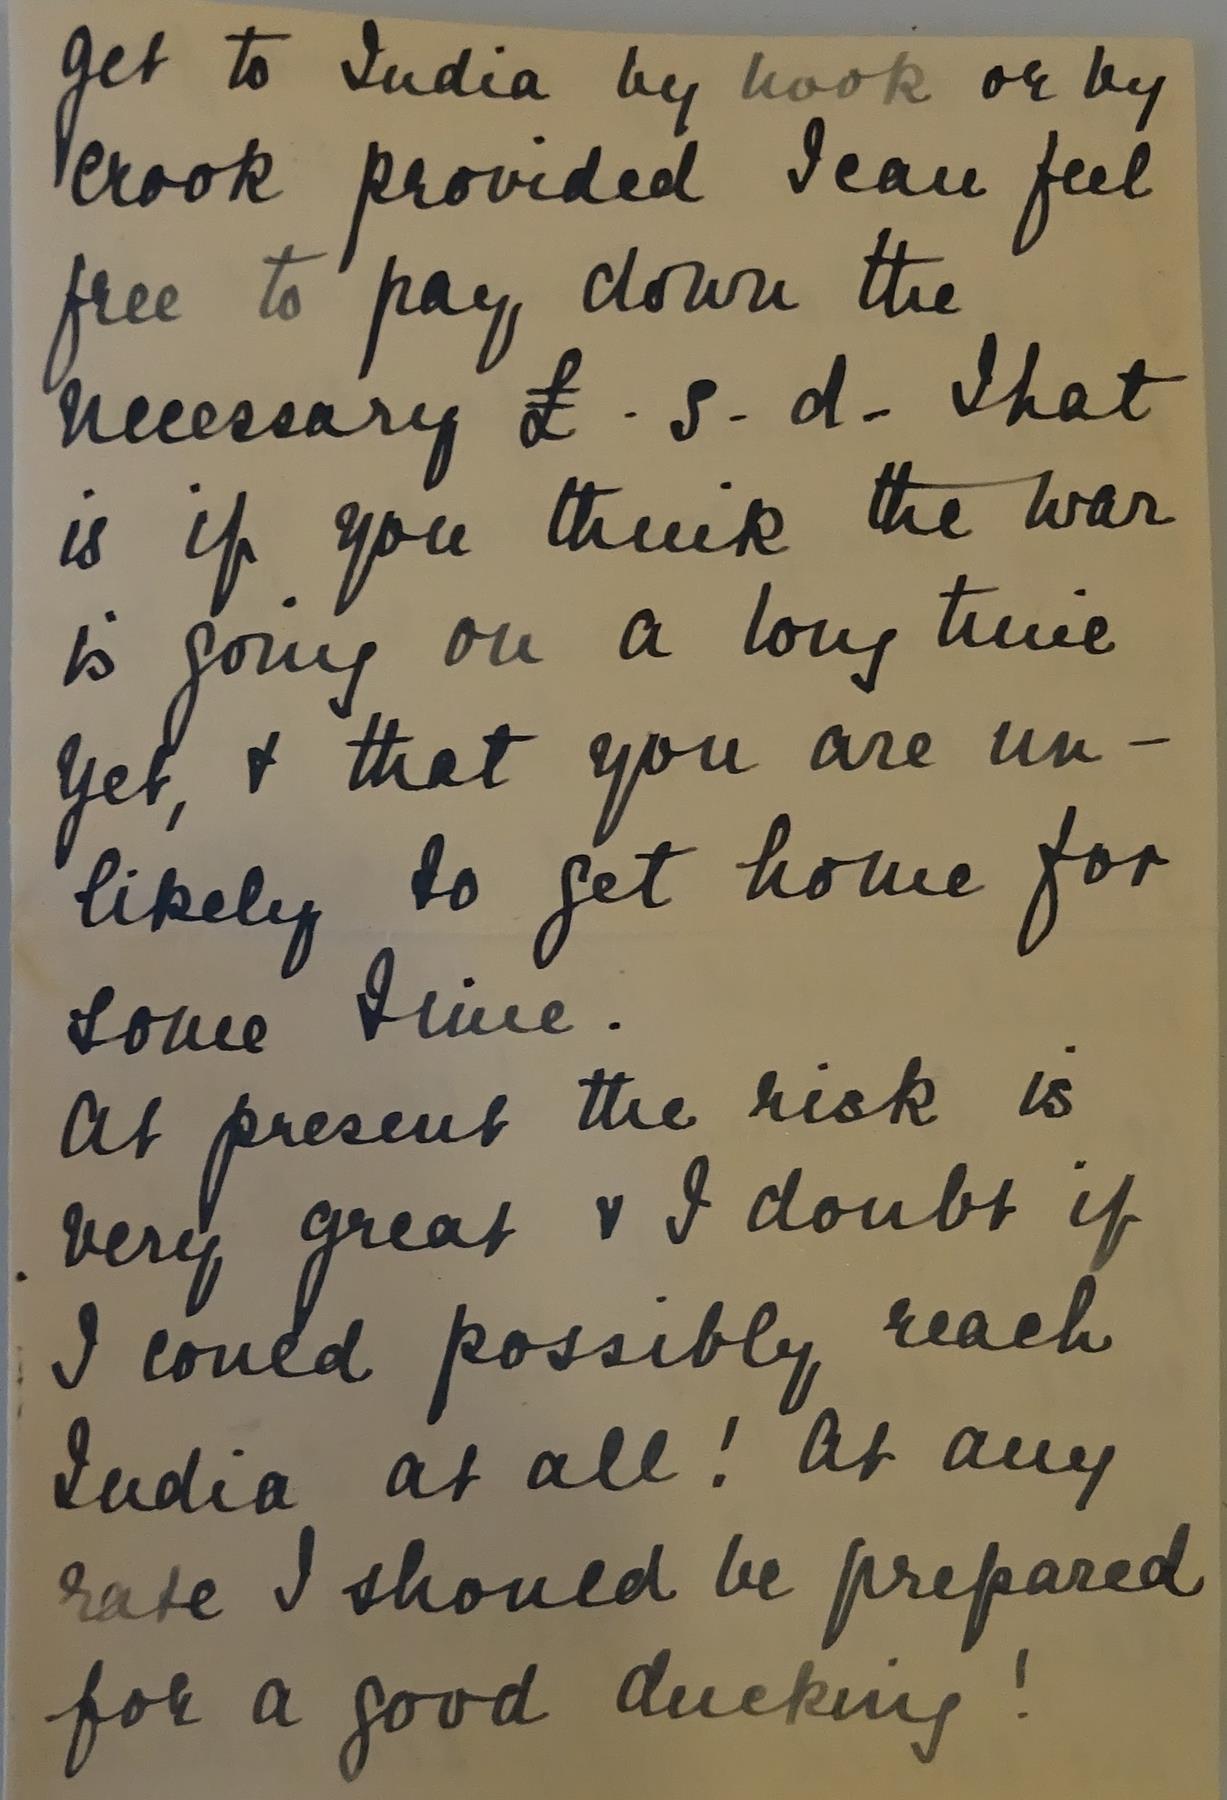 get to India by hook or by
crook provided I can feel
free to pay down the
necessary £ . s - d - That
is if you think the war
is going on a long time
yet, & that you are un-
likely to get home for
some time.
At present the risk is
very great & I doubt if
I could possibly reach
India at all! At any
rate I should be prepared
for a good ducking!